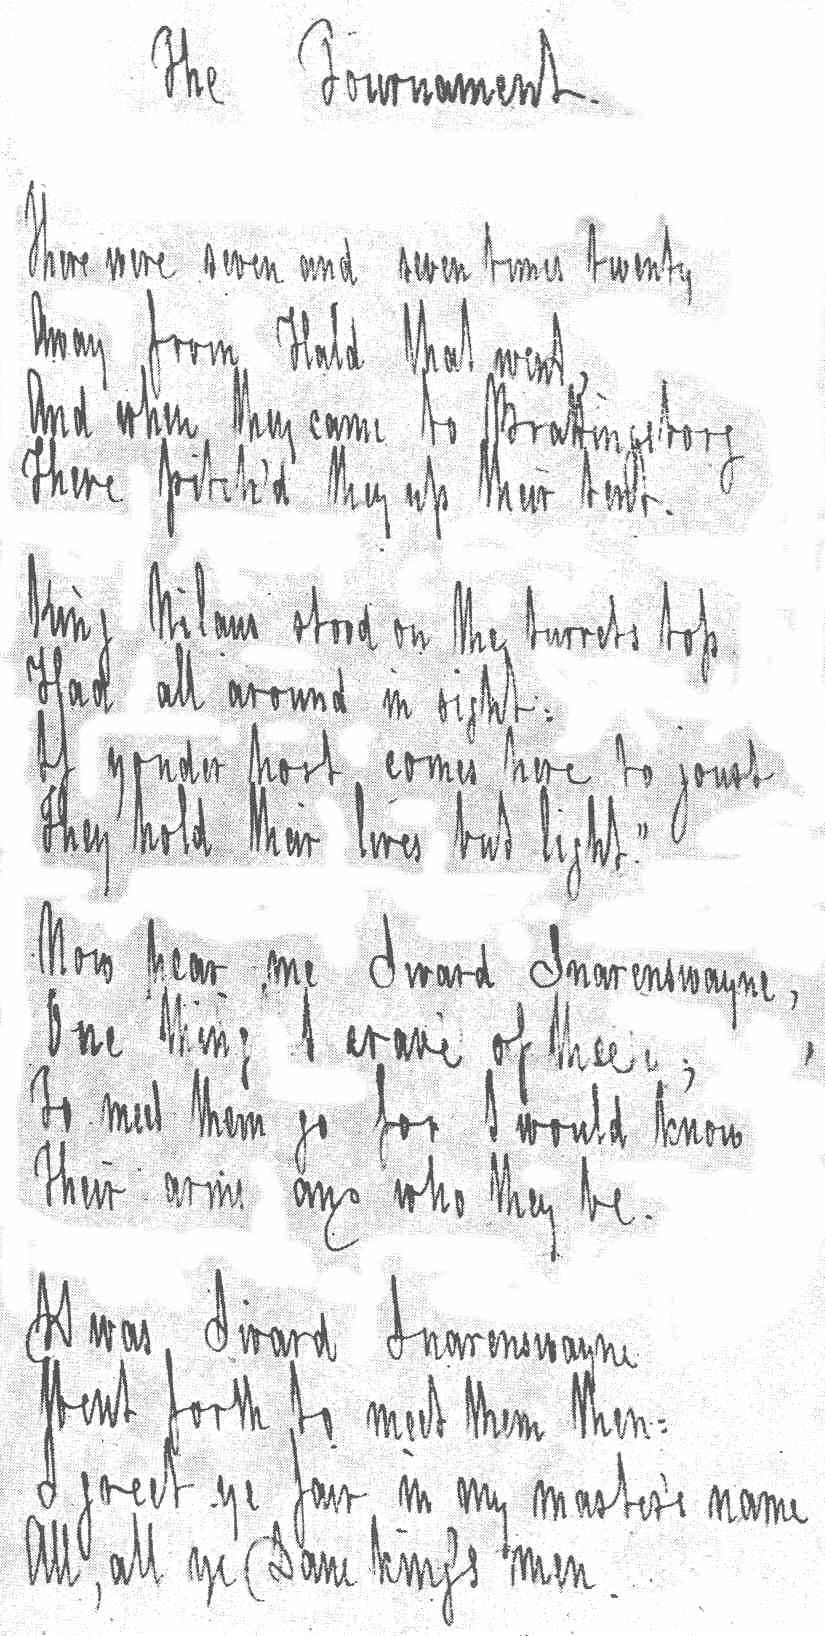 The Tournament.
There were seven and seven times twenty
Away from Hald that went,
And when they came to Brattingsborg
There pitch'd they up their tent.
King Nilaus stood on the turrets top
Had all around in sight:
If yonder host comes here to joust
They hold their lives but light."
Now hear me Sivard Snarenswayne,
One thing I crave of thee;
To meet them go for I would know
Their arms and who they be.
It was Sivard Snarenswayne
Went forth to meet them then:
I greet ye fair in my master's name
All, all ye Dane king's men.